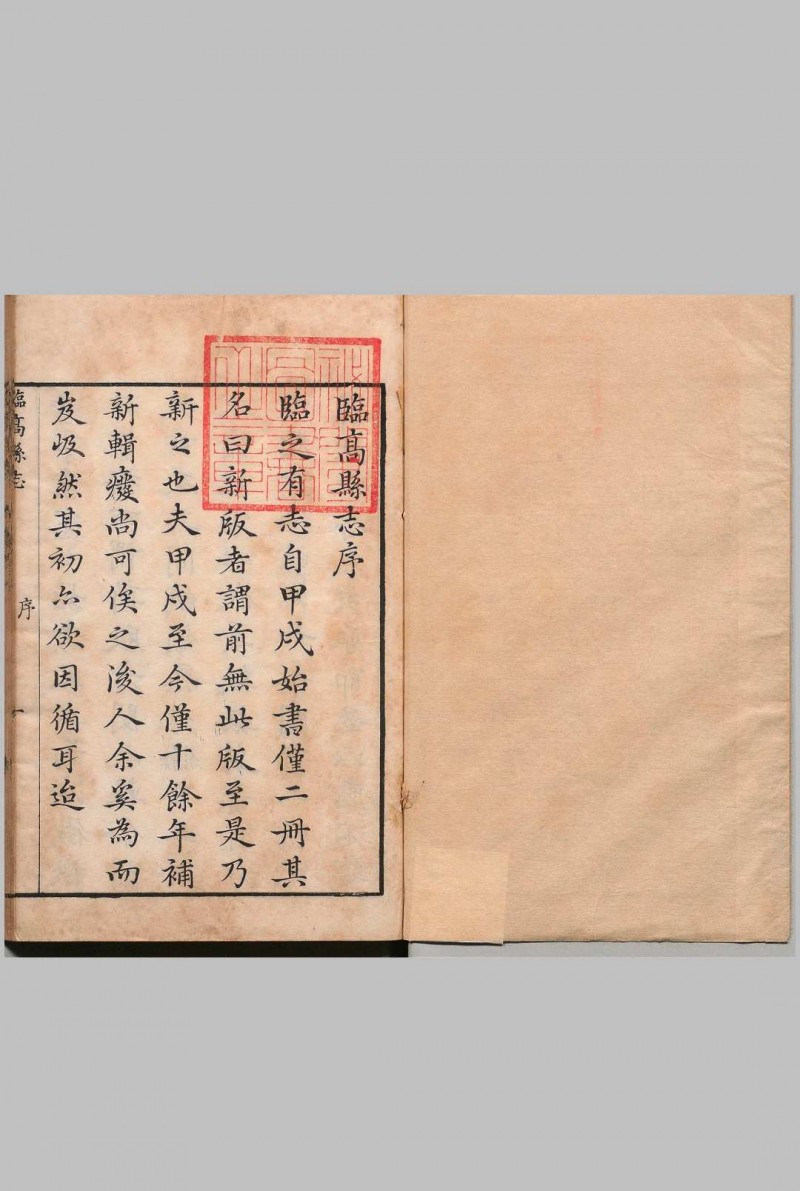 臨髙縣志序
臨之有志自甲戌始書僅二冊其
名曰新版者謂前無此版至是乃
新之也夫甲戌至今僅十餘年補
新輯癈尚可俟之後人余奚為而
岌岌然其初尒欲因循耳迨
臨髙縣志
序
一